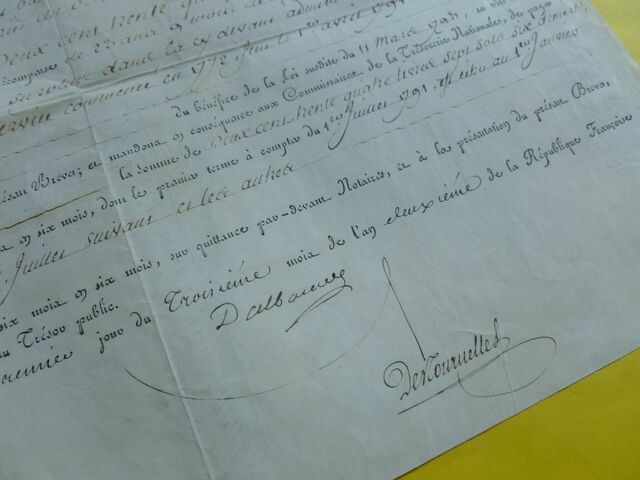 Deux cent trente quatre
récompense
service dans la cy devant
service commencé en 1772, fini le 1er avril 1791
du bénéfice de la Loi susdite du 11 Mars 1791, sa vie
présent Brevet; et mandons en conséquence aux Commissaires de la Trésorerie Nationale, de payer
la somme de Deux cent trente quatre livres sept sols six deniers
en six mois, dont le premier terme à compter du 1er Juillet 1791, est échu au 1er Janvier
Juillet suivant et les autres
six mois en six mois, sur quittance par-devant Notaires, et à la présentation du présent Brevet,
au Trésor public.
jour du Troisième mois de l'an deuxième de la République Française
Dalbarade
Destournelles